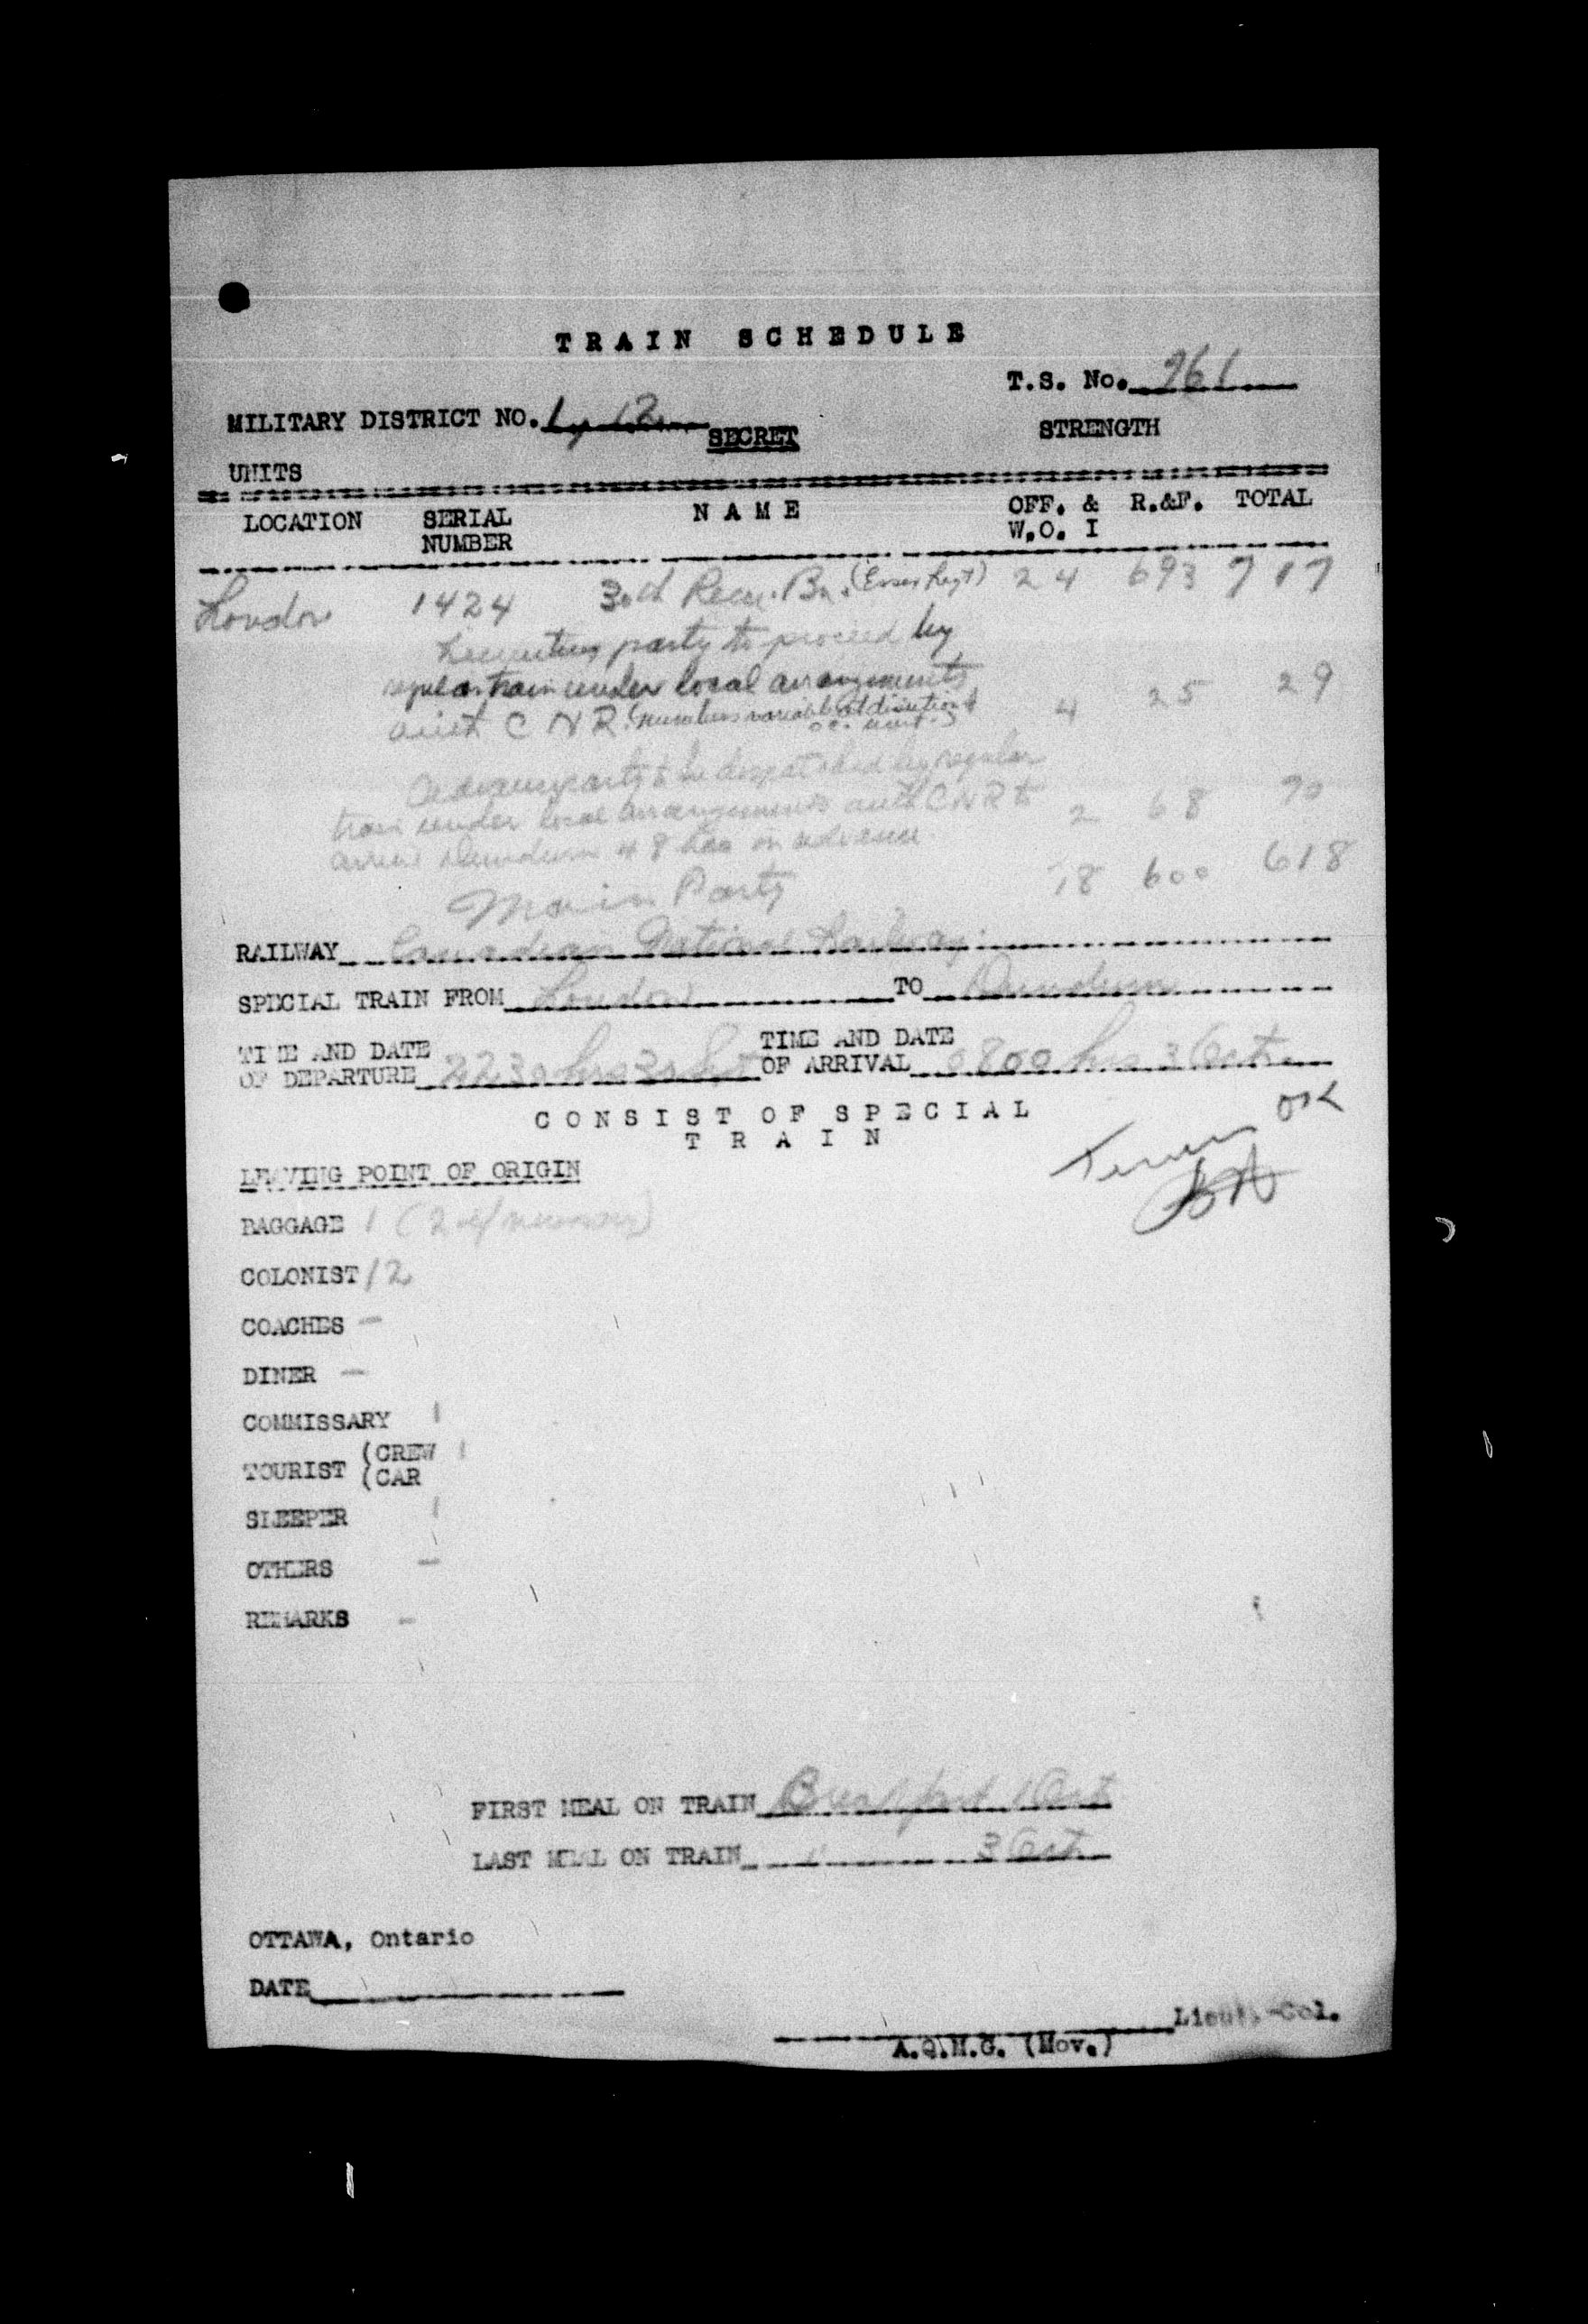 TRAIN SCHEDULE
T.S. No. 961
MILITARY DISTRICT NO. 1, 12
SECRET
STRENGTH
UNITS
LOCATION SERIAL NUMBER NAME OFF. & W.O. I R.&F. TOTAL
London 1424 30th Recce. Bn. (Essex Regt) 24 693 717
party to proceed by
regular train under local arrangements
with C N R (numbers variable at discretion of 4 25 29
O.C. unit.)
Advance party to be despatched by regular
train under local arrangements with CNR to 2 68 70
arrive Dundurn 48 hrs in advance
Main Party 18 600 618
RAILWAY Canadian National Railway.
SPECIAL TRAIN FROM London TO Dundurn
TIME AND DATE OF DEPARTURE 2230 hrs 30 Sept TIME AND DATE OF ARRIVAL 0800 hrs 3 Oct.
CONSIST OF SPECIAL
TRAIN
OK
LEAVING POINT OF ORIGIN
BAGGAGE 1 (2 if necessary)
COLONIST 12
COACHES —
DINER —
COMMISSARY 1
TOURIST (CREW 1
(CAR
SLEEPER 1
OTHERS —
REMARKS -
FIRST MEAL ON TRAIN Breakfast 1 Oct
LAST MEAL ON TRAIN " 3 Oct.
OTTAWA, Ontario
DATE
Lieut.-Col.
A.Q.M.G. (Mov.)